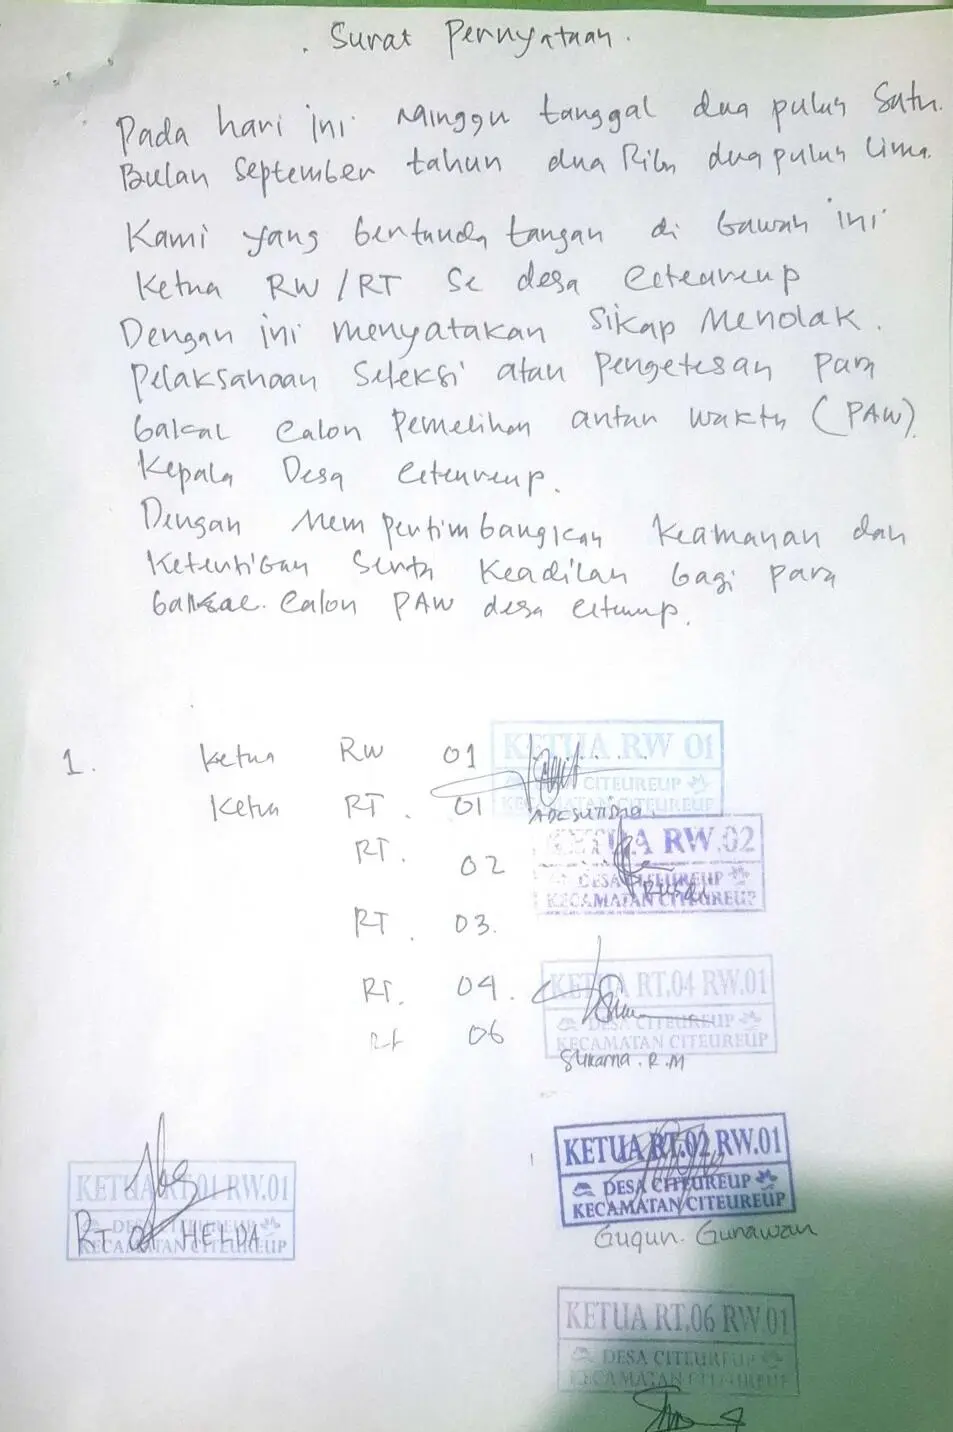 . Surat Pernyataan.
Pada hari ini Minggu tanggal dua puluh satu.
Bulan September tahun dua Ribu dua puluh Lima.
Kami yang bertanda tangan di bawah ini
Ketua RW / RT Se desa Citeureup
Dengan ini menyatakan Sikap Menolak.
Pelaksanaan Seleksi atau Pengetesan Para
bakal Calon Pemelihan antar waktu (PAW)
Kepala Desa Citeureup.
Dengan Mempertimbangkan Keamanan dan
Ketertiban Serta Keadilan bagi Para
bakal Calon PAW desa
1. Ketua RW 01
KETUA RW 01
CITEUREUP
KECAMATAN CITEUREUP
Ketua RT. 01
RT. 02
KETUA RW.02
DESA CITEUREUP
KECAMATAN CITEUREUP
RT. 03.
RT. 04.
KETUA RT.04 RW.01
DESA CITEUREUP
KECAMATAN CITEUREUP
Rt 06
Sukarna. R.M
KETUA RT.01 RW.01
DESA CITEUREUP
KECAMATAN CITEUREUP
RT 01 HELDA
KETUA RT.02 RW.01
DESA CITEUREUP
KECAMATAN CITEUREUP
Gugun. Gunawan
KETUA RT.06 RW.01
DESA CITEUREUP
KECAMATAN CITEUREUP